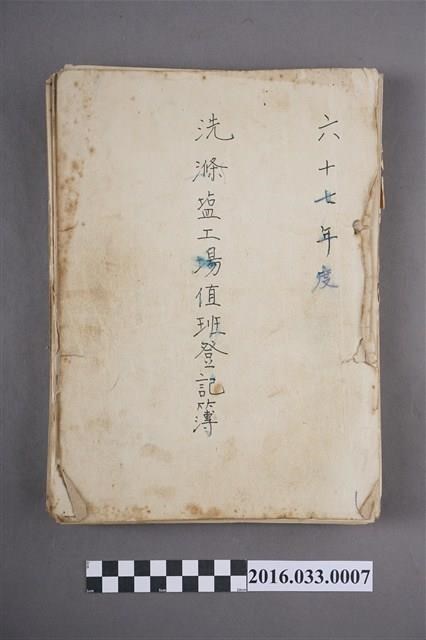 六十七年度
洗滌盐工場值班登記簿
2016.033.0007